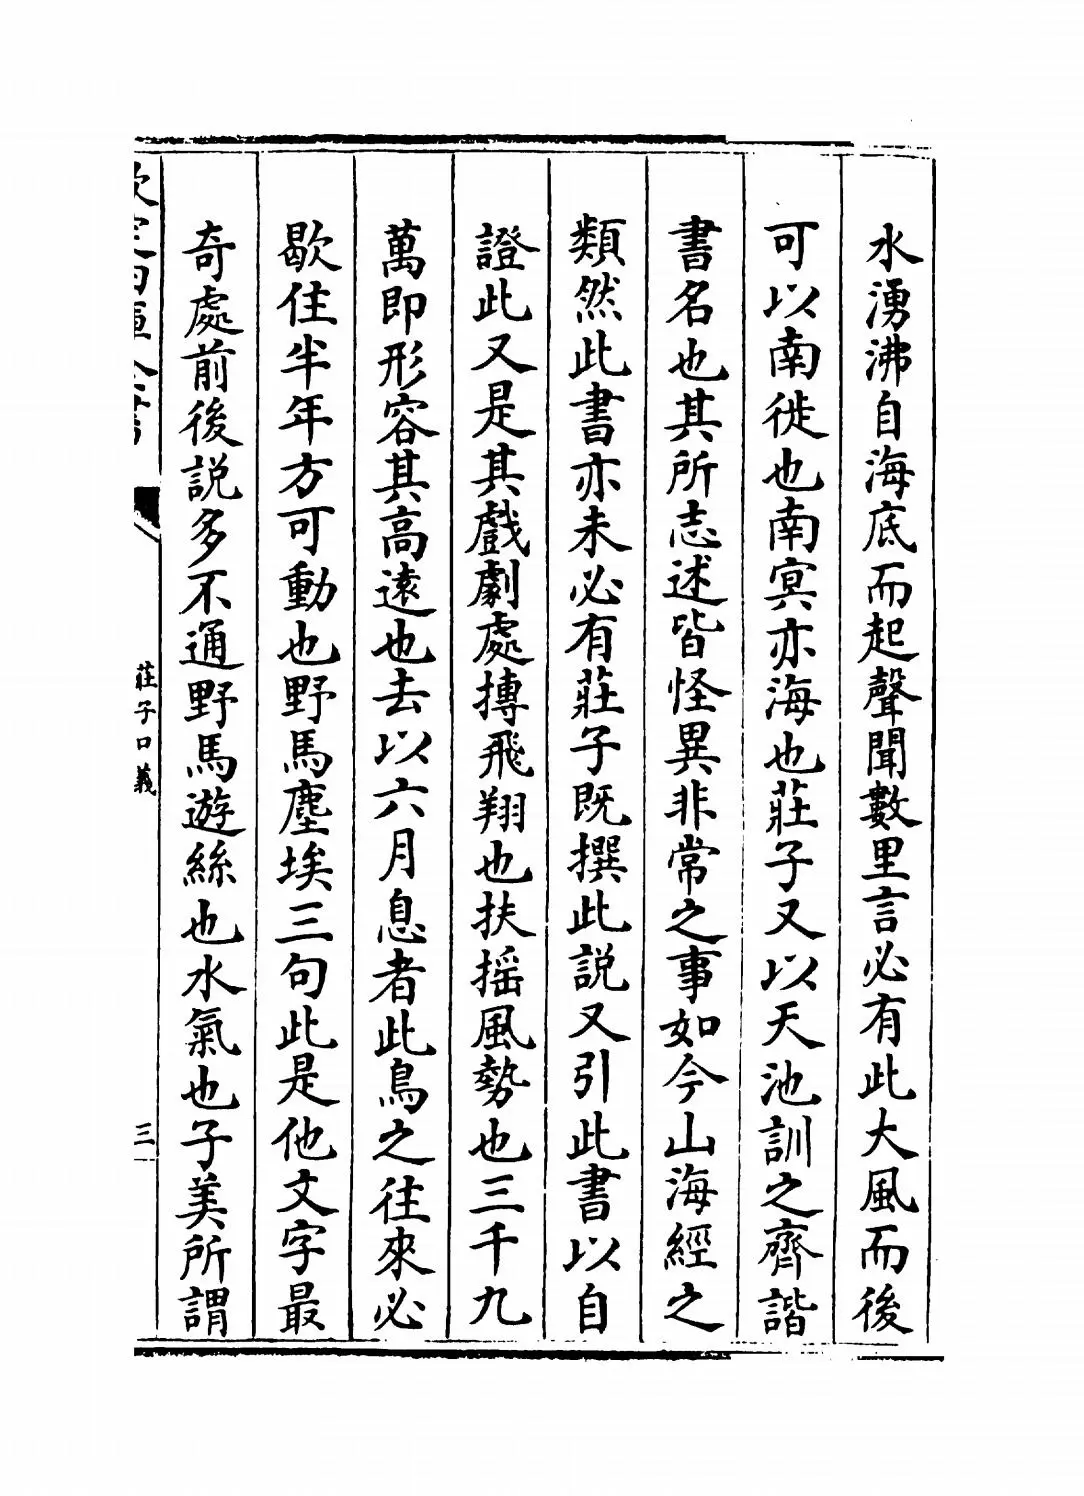 水湧沸自海底而起聲聞數里言必有此大風而後
可以南徙也南冥亦海也莊子又以天池訓之齊諧
書名也其所志述皆怪異非常之事如今山海經之
類然此書亦未必有莊子既撰此説又引此書以自
證此又是其戲劇處摶飛翔也扶摇風勢也三千九
萬即形容其高遠也去以六月息者此鳥之往來必
歇住半年方可動也野馬塵埃三句此是他文字最
奇處前後説多不通野馬遊絲也水氣也子美所謂
欽定四庫全書
莊子口義
三